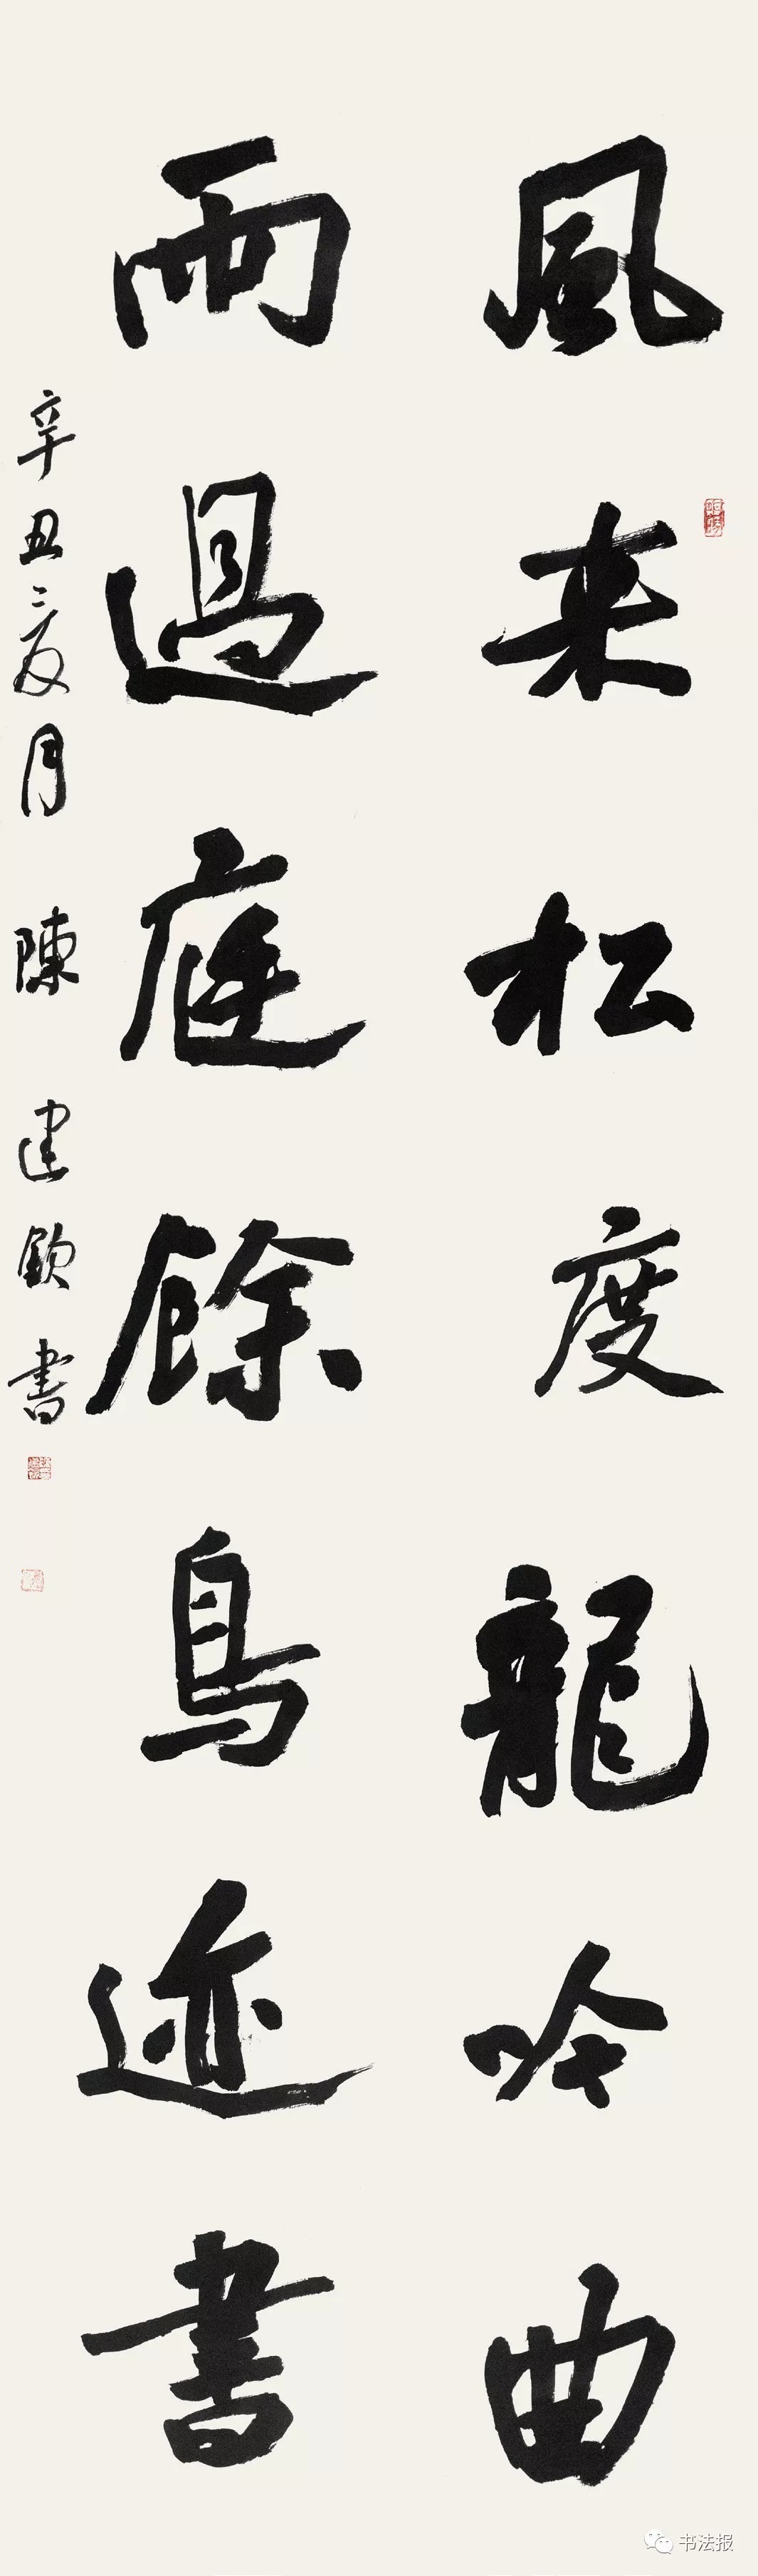 風来松度龍吟曲
雨過庭餘鳥迹書
辛丑夏月 陳建欽書
书法报